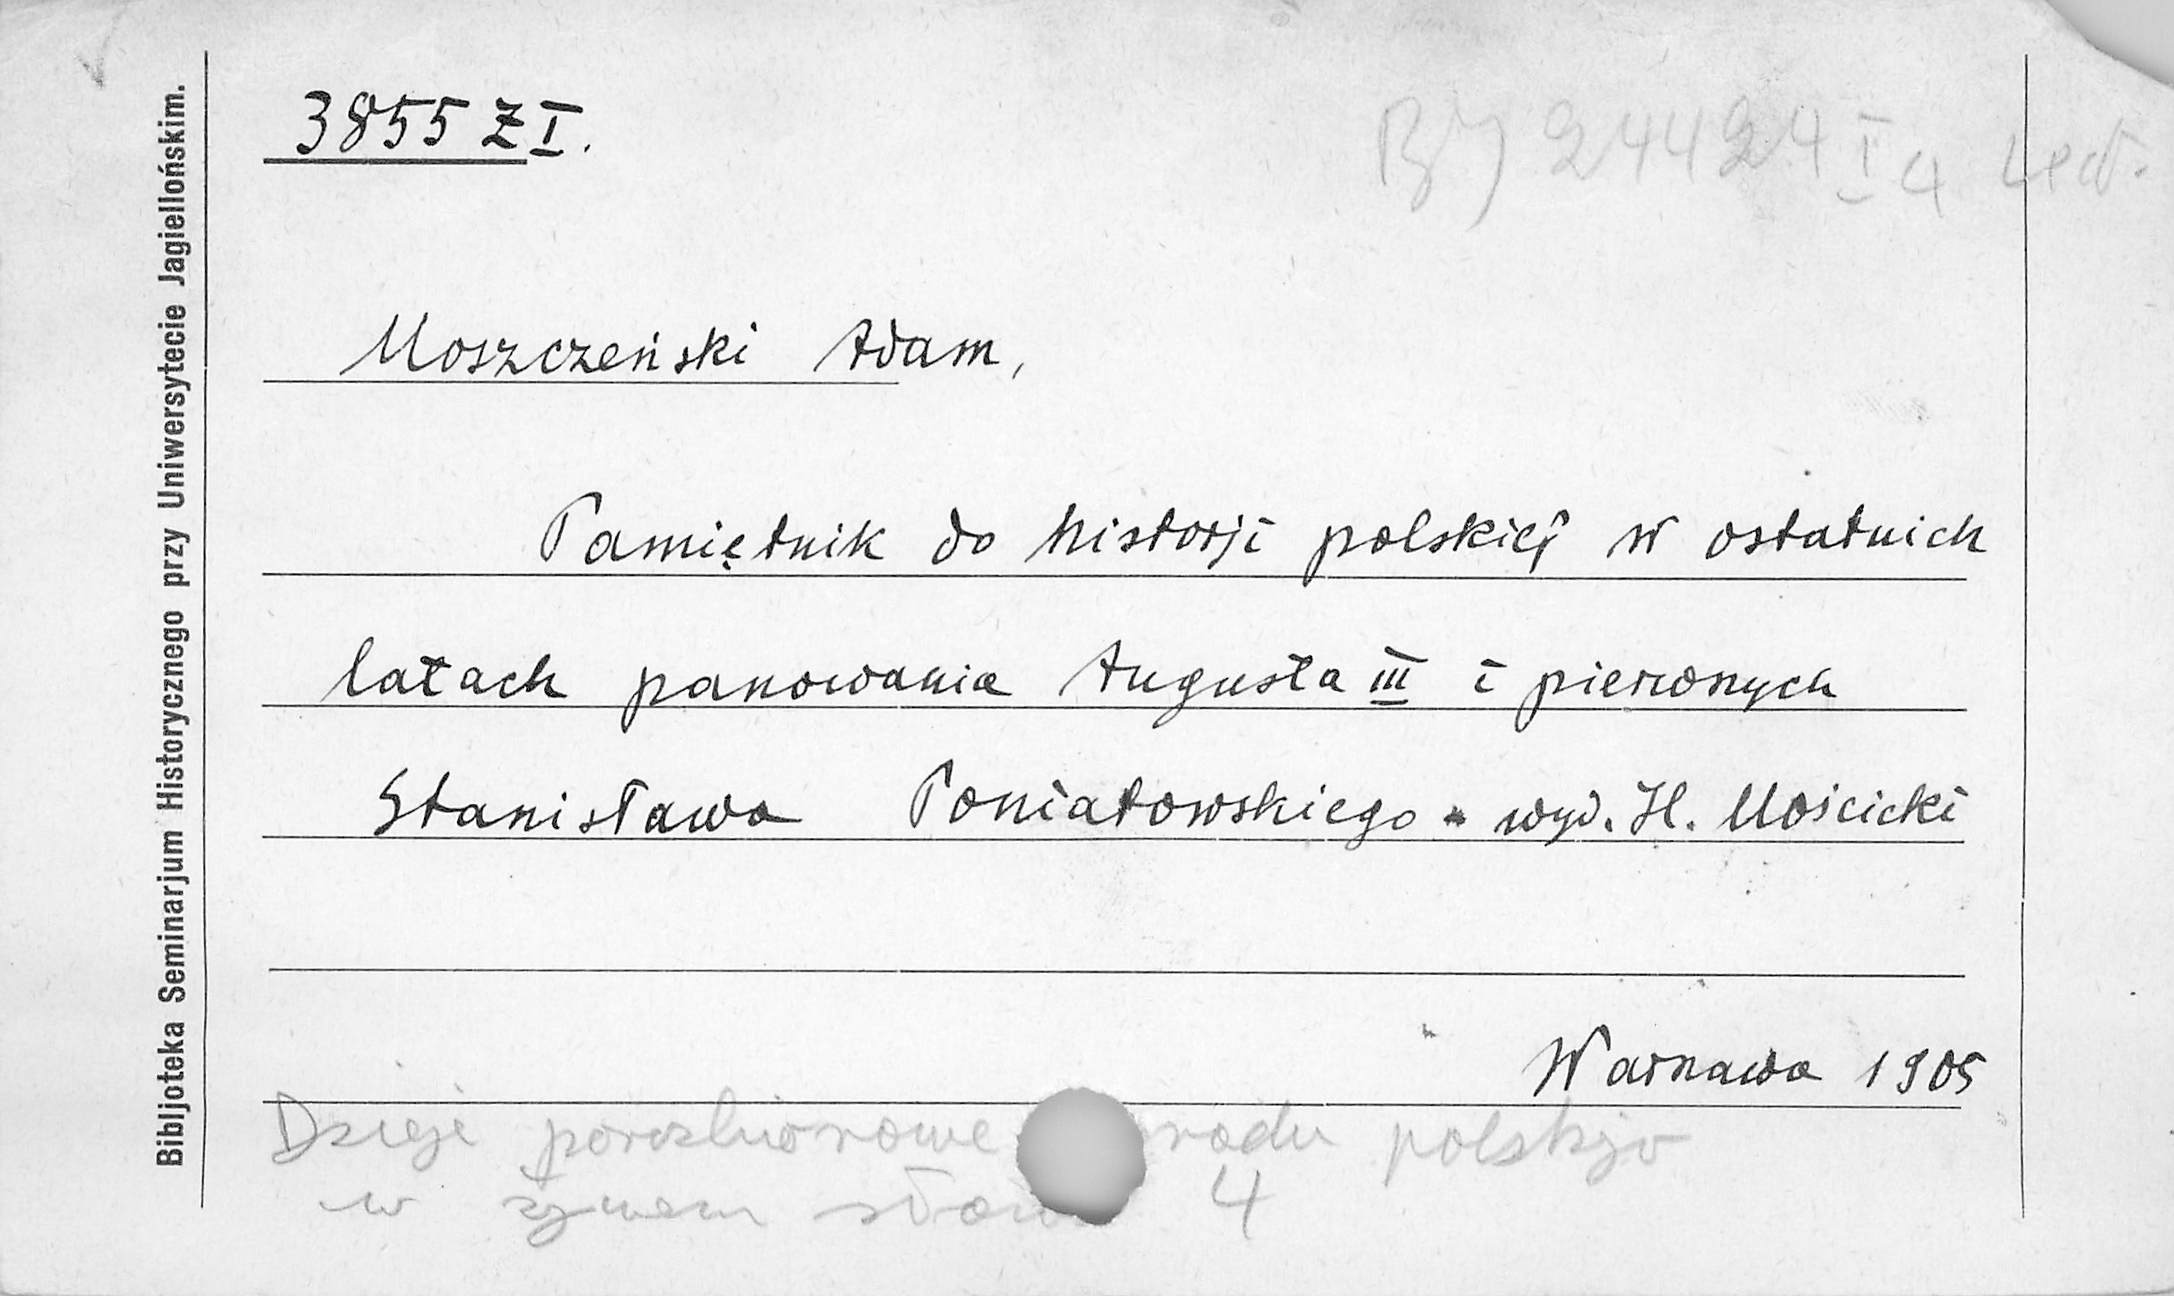 Bibljoteka Seminarjum Historycznego przy Uniwersytecie Jagiellońskim.
3855 Z I.
BJ 24424 I 4
Moszczeński Adam,
Pamiętnik do historji polskiej w ostatnich
latach panowania Augusta III i pierwszych
Stanisława Poniatowskiego - wyd. H. Mościcki
Warszawa 1905
Dzieje porozbiorowe rodu polskigo
w żywem słowie 4